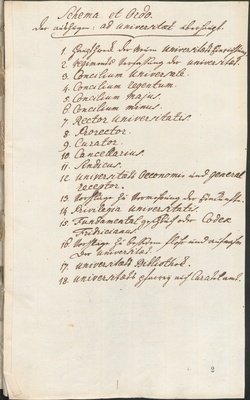 Schema et Ordo.
der anfragen: ad Universitæt überhaupt.
1 der Universitæts
2 Regiments Verfassung der Universitæt
3 Concilium Universale.
4 Concilium regentum.
5 Concilium majus.
6 Concilium minus.
7 Rector Universitatis.
8 Prorector.
9 Curator.
10 Cancellarius.
11 Sindicus.
12 Universitäts Oeconomie und general
receptor.
13 Vorschläge zu Vermehrung der
14 Privilegia Universitatis
15 Fundamental oder Codex
Fridicianus.
16 Vorschläge zu und aufnahme
der Universitæt.
17 Universitäts Bibliothec.
18 Universitäts auf Curatel amt.
2